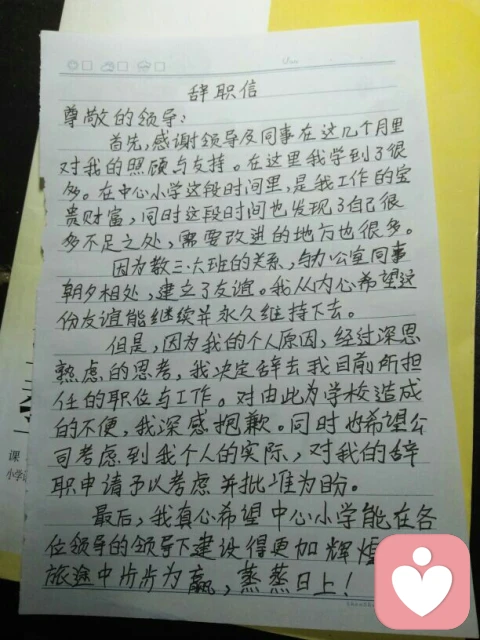 辞职信
尊敬的领导：
首先，感谢领导及同事在这几个月里
对我的照顾与支持。在这里我学到了很
多。在中心小学这段时间里，是我工作的宝
贵财富，同时这段时间也发现了自己很
多不足之处，需要改进的地方也很多。
因为教三.六班的关系，与办公室同事
朝夕相处，建立了友谊。我从内心希望这
份友谊能继续并永久维持下去。
但是，因为我的个人原因，经过深思
熟虑的思考，我决定辞去我目前所担
任的职位与工作。对由此为学校造成
的不便，我深感抱歉。同时也希望公
司考虑到我个人的实际，对我的辞
职申请予以考虑并批准为盼。
最后，我真心希望中心小学能在各
位领导的领导下建设得更加辉煌
旅途中片片为赢，蒸蒸日上！
课
小学